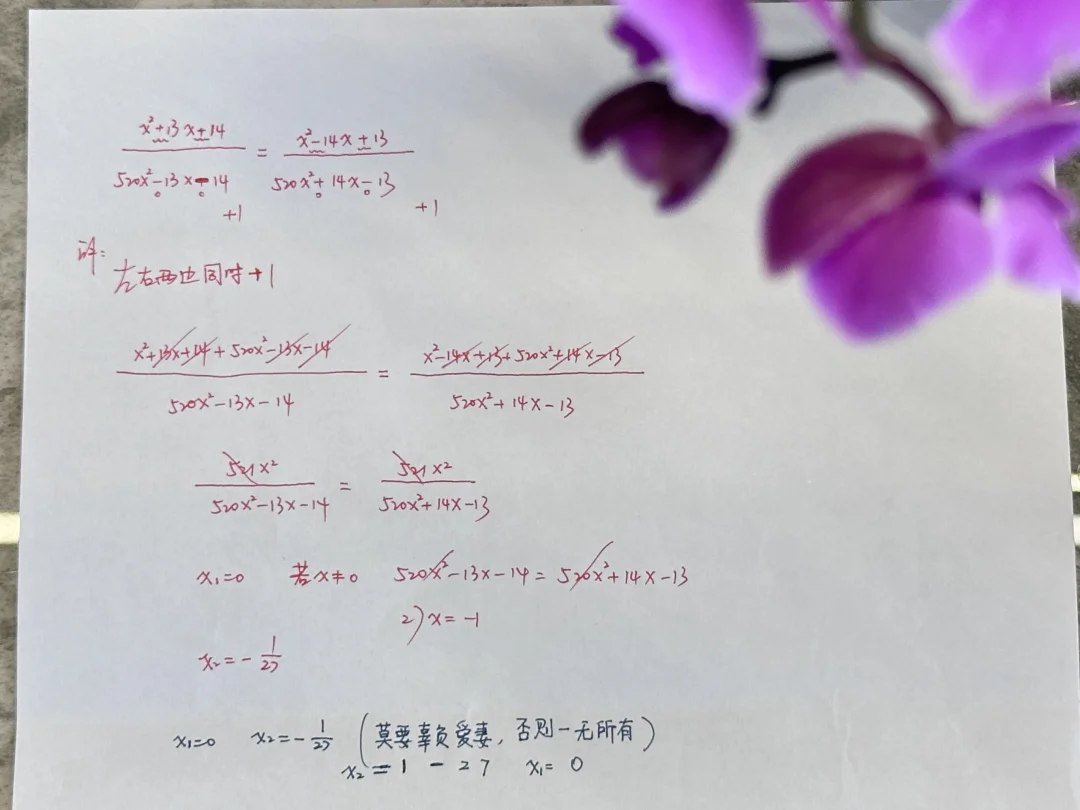 x²+13x+14 / 520x²-13x-14 = x²-14x+13 / 520x²+14x-13
+1 +1
解:
左右两边同时+1
x²+13x+14+520x²-13x-14 / 520x²-13x-14 = x²-14x+13+520x²+14x-13 / 520x²+14x-13
521x² / 520x²-13x-14 = 521x² / 520x²+14x-13
x₁=0 若x≠0 520x²-13x-14=520x²+14x-13
27x=-1
x₂=-1/27
x₁=0 x₂=-1/27 (莫要辜负爱妻,否则一无所有)
x₂=1-27 x₁=0